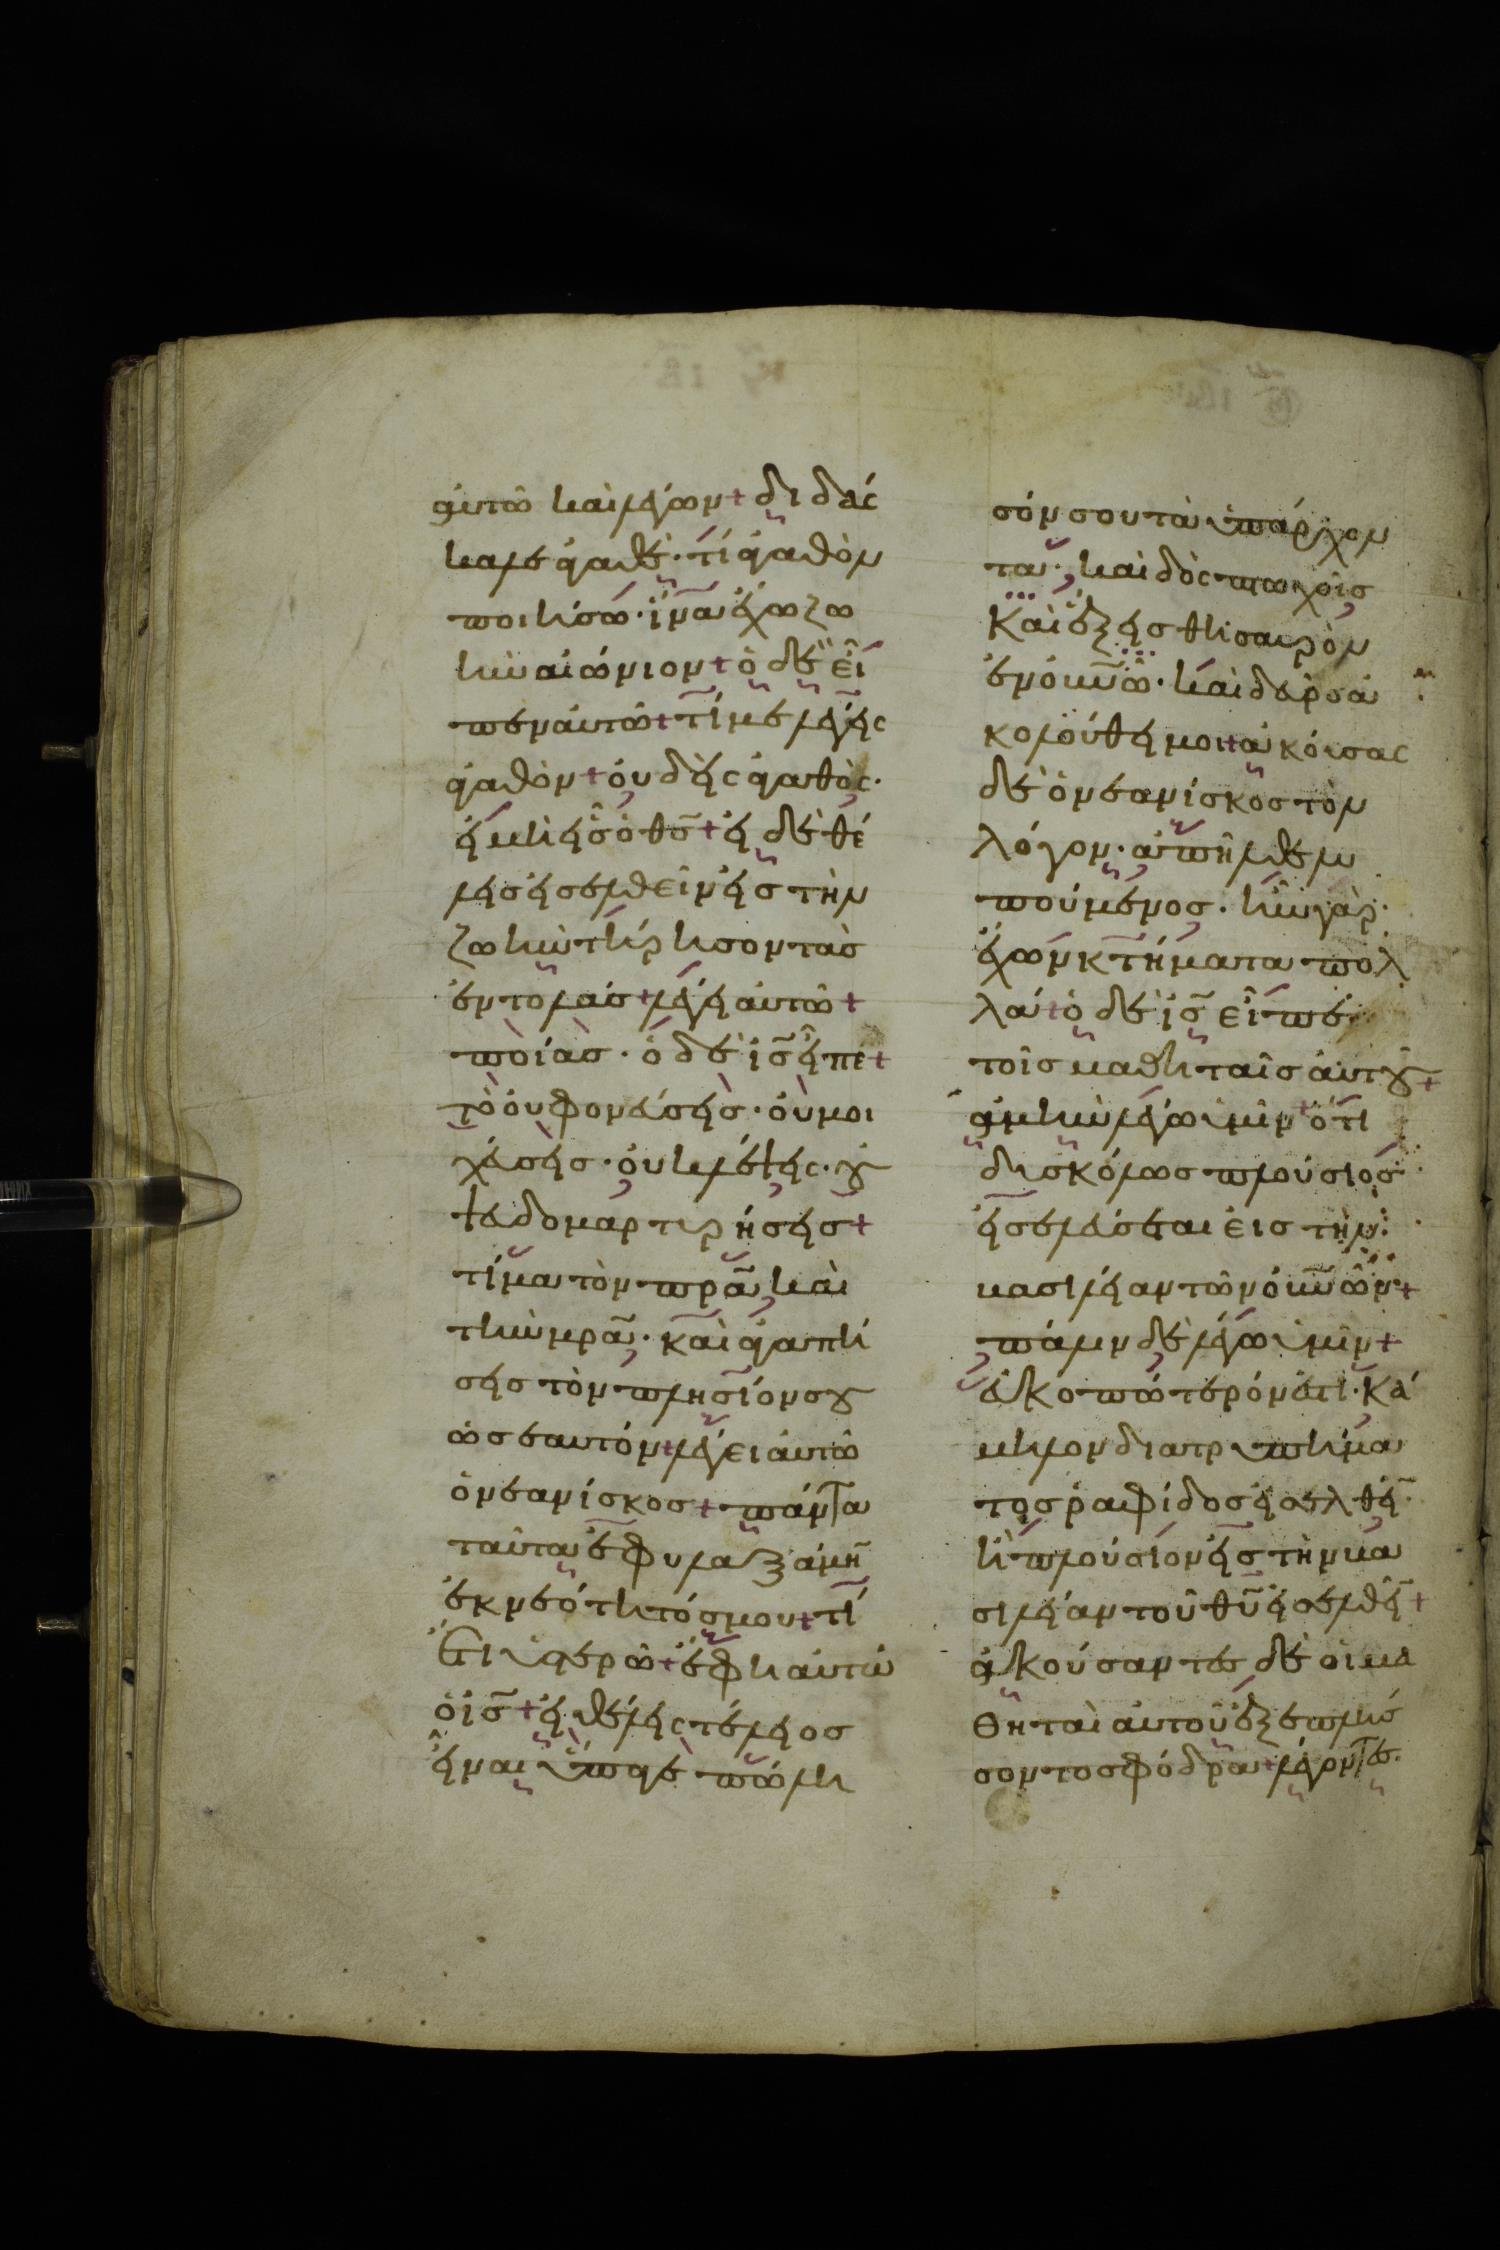 αυτῶ καὶ λέγων + διδάς
καλε ἀγαθέ · τί ἀγαθὸν
ποιήσω · ἵνα ἔχω ζω
ὴν αἰώνιον + ὁ δὲ εἶ
πεν αυτῶ + τί με λέγεις
ἀγαθὸν + οὐδεὶς ἀγαθὸς ·
εἰ μὴ εἷσ ὁ θσ̅ + εἰ δὲ θέ
λεισ εἰσελθεῖν εἰσ τὴν
ζωὴν τήρησον τὰσ
ἐντολάσ + λέγει αὐτῶ +
ποίασ · ὁ δὲ ἰσ̅ εἶπε +
τὸ οὐ φονεύσεισ · οὐ μοι
χεύσεισ · οὐ κλέψεις · οὐ
ψευδομαρτυρήσεισ +
τίμα τὸν πρ̅α̅ καὶ
τὴν μρ̅α̅ · καὶ ἀγαπή
σεισ τὸν πλησίον σου
ὡσ σεαυτόν + λέγει αὐτῶ
ὁ νεανίσκοσ + πάντα
ταῦτα ἐφυλαξάμη̅
ἐκ νεότητόσ μου + τί
ἔτι ὑστερῶ + ἔφη αὐτῶ
ὁ ἰσ̅ + εἰ θέλεις τέλειοσ
εἶναι ὕπαγε πώλη
σόν σου τὰ ὑπάρχον
τα · καὶ δὸς πτωχοῖσ
Καὶ ἕξεισ θησαυρὸν
ἐν οὐν̅ῶ · καὶ δεῦρο ἀ
κολούθει μοι + ἀκούσας
δὲ ὁ νεανίσκοσ τὸν
λόγον · ἀπῆλθε λυ
πούμενοσ · ἦν γὰρ ·
ἔχων κτήματα πολ
λά + ὁ δὲ ἰσ̅ εἶπε
τοῖσ μαθηταῖσ αὐτοῦ +
ἀμὴν λέγω ὑμῖν + ὅτι
δυσκόλωσ πλούσιοσ
εἰσελεύσεται εἰσ τὴν
βασιλείαν τῶν οὐν̅ῶν +
πάλιν δὲ λέγω ὑμῖν +
εὐκοπώτερόν ἐστι · Κά
μηλον δια τρυπήμα
τοσ ραφίδοσ εἰσελθεῖ̅ ·
ἢ πλούσιον εἰσ τὴν βα
σιλείαν τοῦ θῡ εἰσελθεῖ̅ +
ἀκούσαντεσ δὲ οἱ μα
θηταὶ αὐτοῦ ἐξεπλήσ
σοντο σφόδρα + λέγοντεσ ·